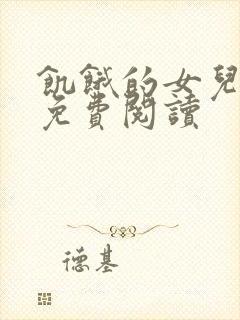 飢餓的女兒
免費閱讀
德基